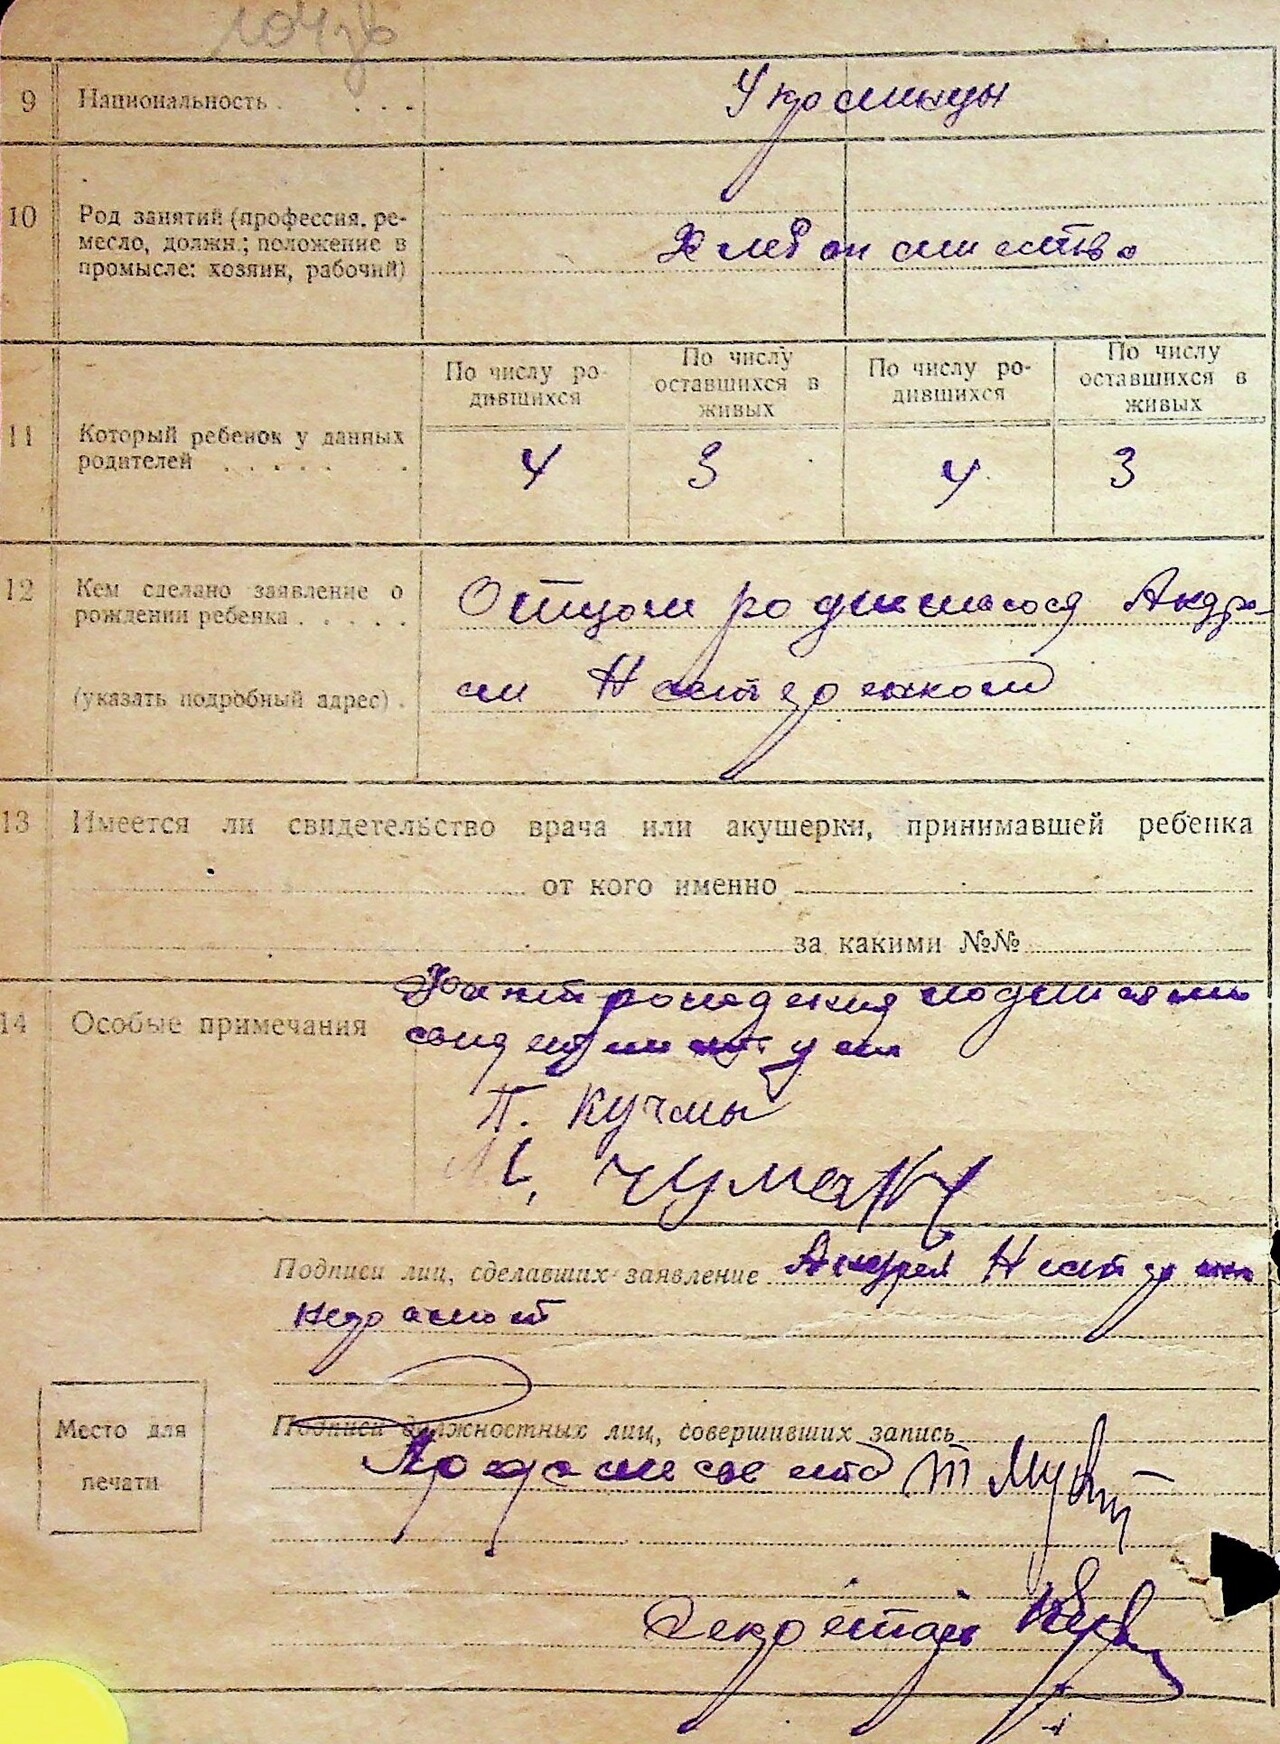 9 Национальность . . . . Украинцы
10 Род занятий (профессия, ре-
месло, должн.; положение в
промысле: хозяин, рабочий)
Хлебопашество
По числу ро-
дившихся
По числу
оставшихся в
живых
По числу ро-
дившихся
По числу
оставшихся в
живых
11 Который ребенок у данных
родителей . . . . . . .
4 3 4 3
12 Кем сделано заявление о
рождении ребенка . . . . .
(указать подробный адрес) .
Отцом родившагося Андре-
ем Нестеренком
13 Имеется ли свидетельство врача или акушерки, принимавшей ребенка
от кого именно
за какими №№
14 Особые примечания
Факт рождения
П. Кучмы
Чумак
Подписи лиц, сделавших заявление Андрей Нестерен
неграмот
Место для
печати
Подписи должностных лиц, совершивших запись
Секретарь